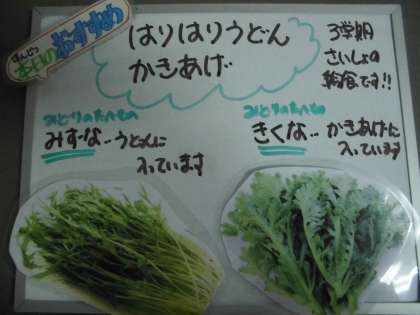 ほんじつ
本日のおすすめ
はりはりうどん
かきあげ
3学期
さいしょの
給食です!!
みどりのたべもの
みずな‥うどんに
入っています
みどりのたべもの
きくな‥かきあげに
入っています